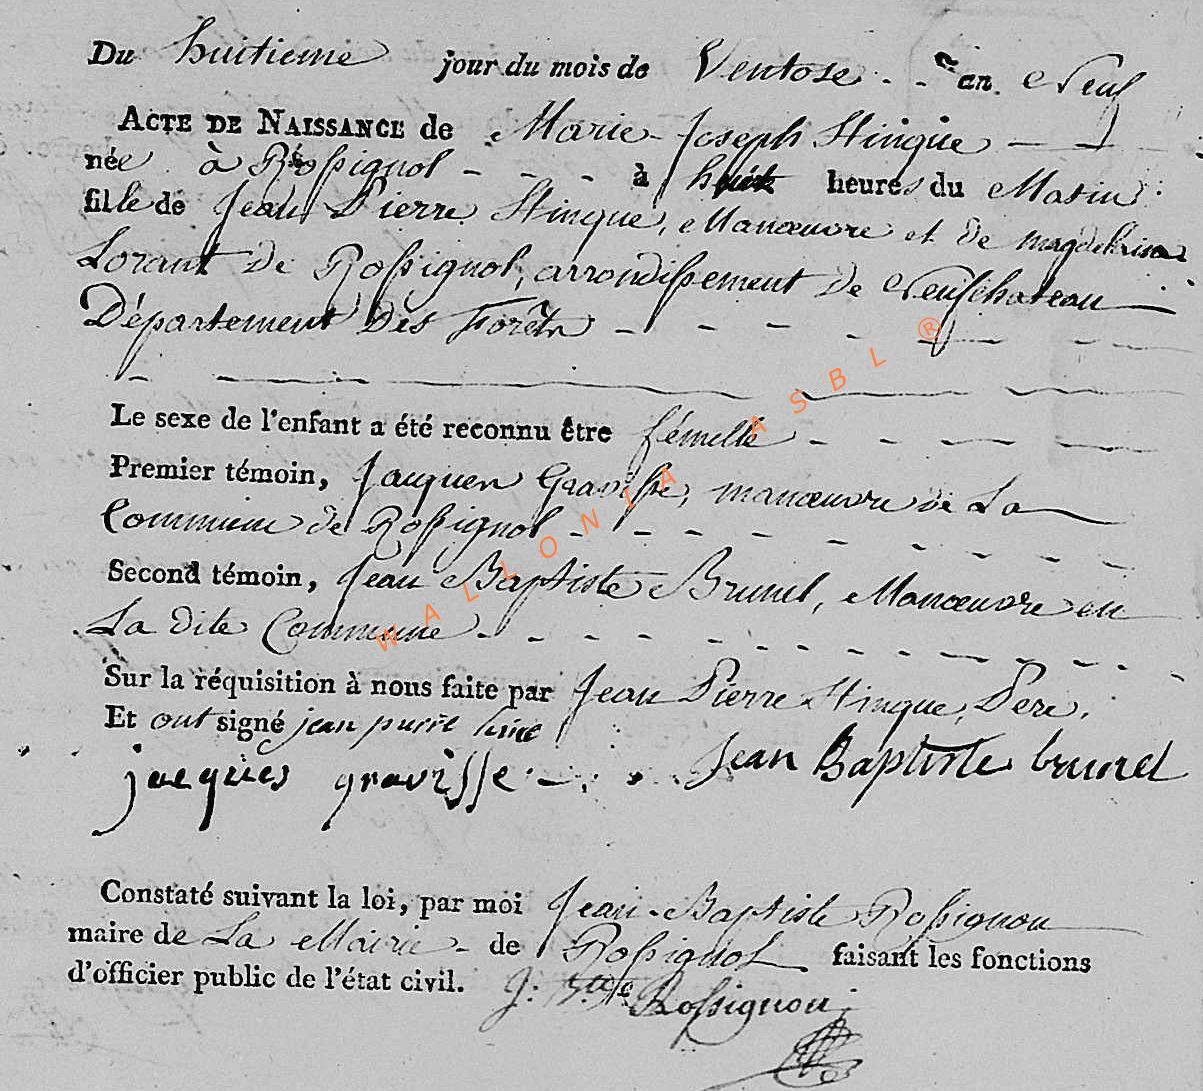 Du huitieme jour du mois de Ventose - - an Neuf
ACTE DE NAISSANCE de Marie-Joseph Hinque
née à Rossignol - - - - à huit heures du Matin
fille de Jean Pierre Hinque, Manœuvre et de magdelaine
Lorant de Rossignol, arrondissement de Neufchateau
Département des Forêts
Le sexe de l'enfant a été reconnu être fémelle
Premier témoin, Jacques Gravisse, manœuvre de La
Commune de Rossignol
Second témoin, Jean Baptiste Brunel, Manœuvre en
La dite Commune
Sur la réquisition à nous faite par Jean Pierre Hinque, Pere.
Et ont signé jean
jacques gravisse Jean Baptiste brunel
Constaté suivant la loi, par moi Jean-Baptiste Rossignon
maire de La Mairie - de Rossignol faisant les fonctions
d'officier public de l'état civil. J: Bte Rossignon
WALLONIA ASBL ®